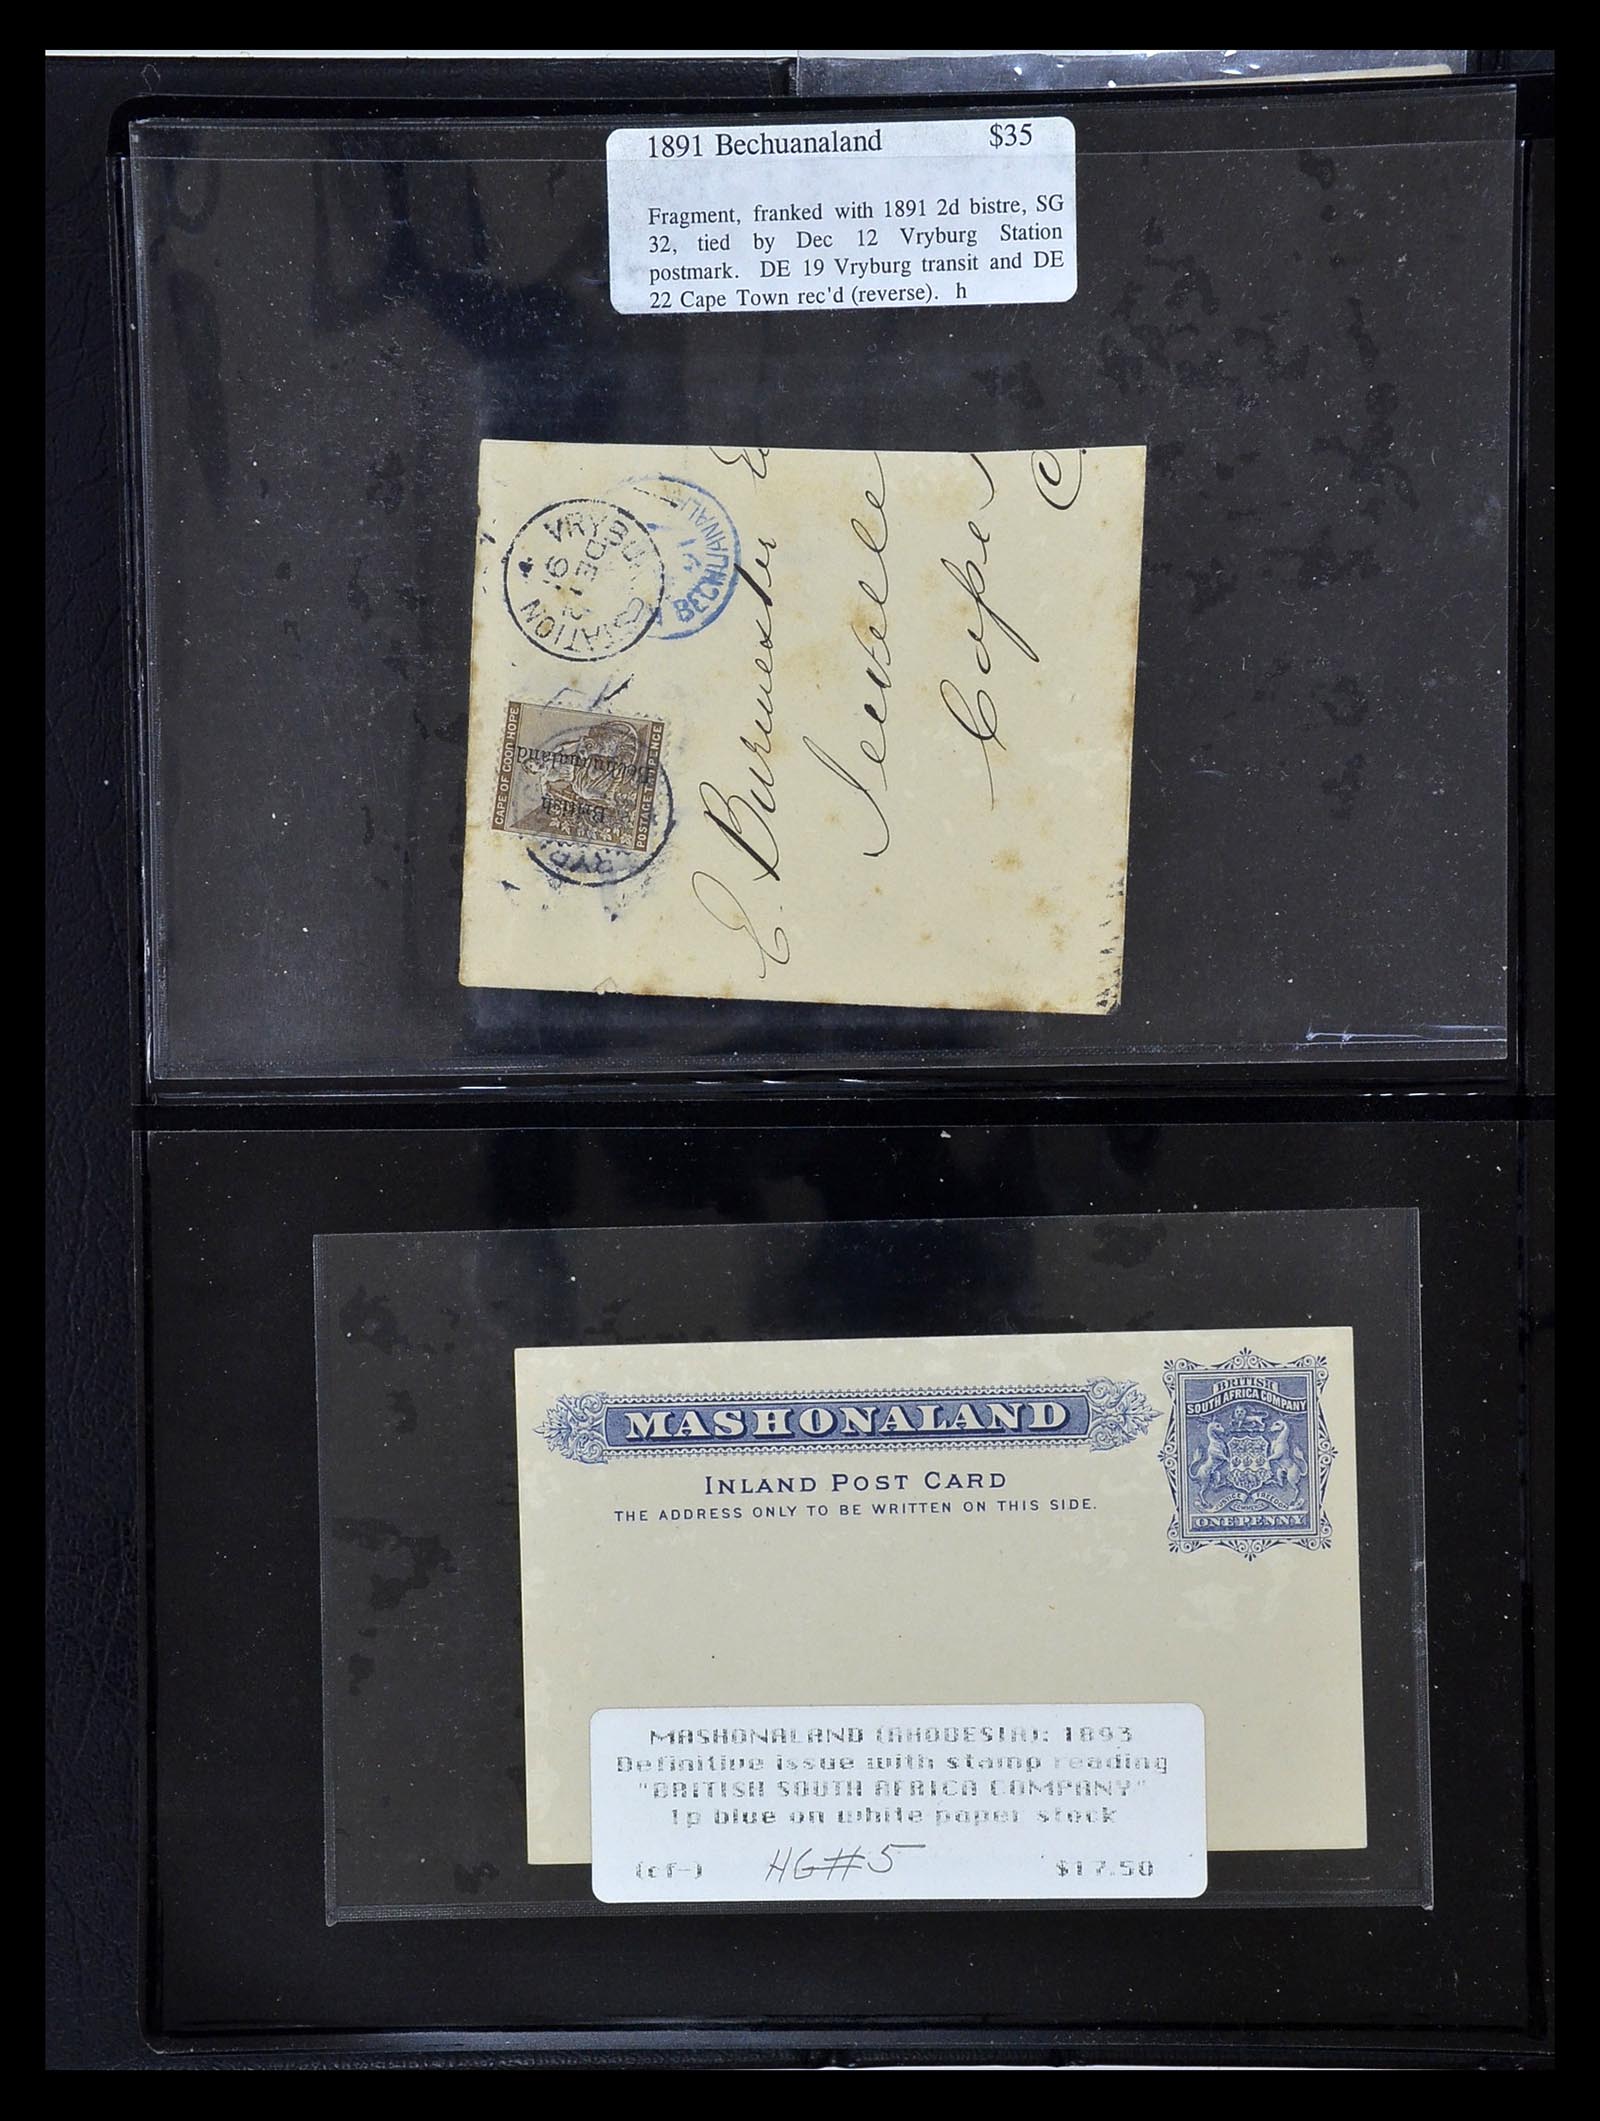 1891 Bechuanaland $35
Fragment, franked with 1891 2d bistre, SG
32, tied by Dec 12 Vryburg Station
postmark. DE 19 Vryburg transit and DE
22 Cape Town rec'd (reverse). h
VRYBU STATION
DE 12
91
BECHUANAL
CAPE OF GOOD HOPE
British
Bechuanaland
POSTAGE TWO PENCE
E. Burmester
Cape
MASHONALAND
INLAND POST CARD
THE ADDRESS ONLY TO BE WRITTEN ON THIS SIDE.
BRITISH
SOUTH AFRICA COMPANY
JUSTICE FREEDOM
COMMERCE
ONE PENNY
MASHONALAND (RHODESIA): 1893
Definitive issue with stamp reading
"BRITISH SOUTH AFRICA COMPANY"
1p blue on white paper stock
(cf-) HG#5 $17.50